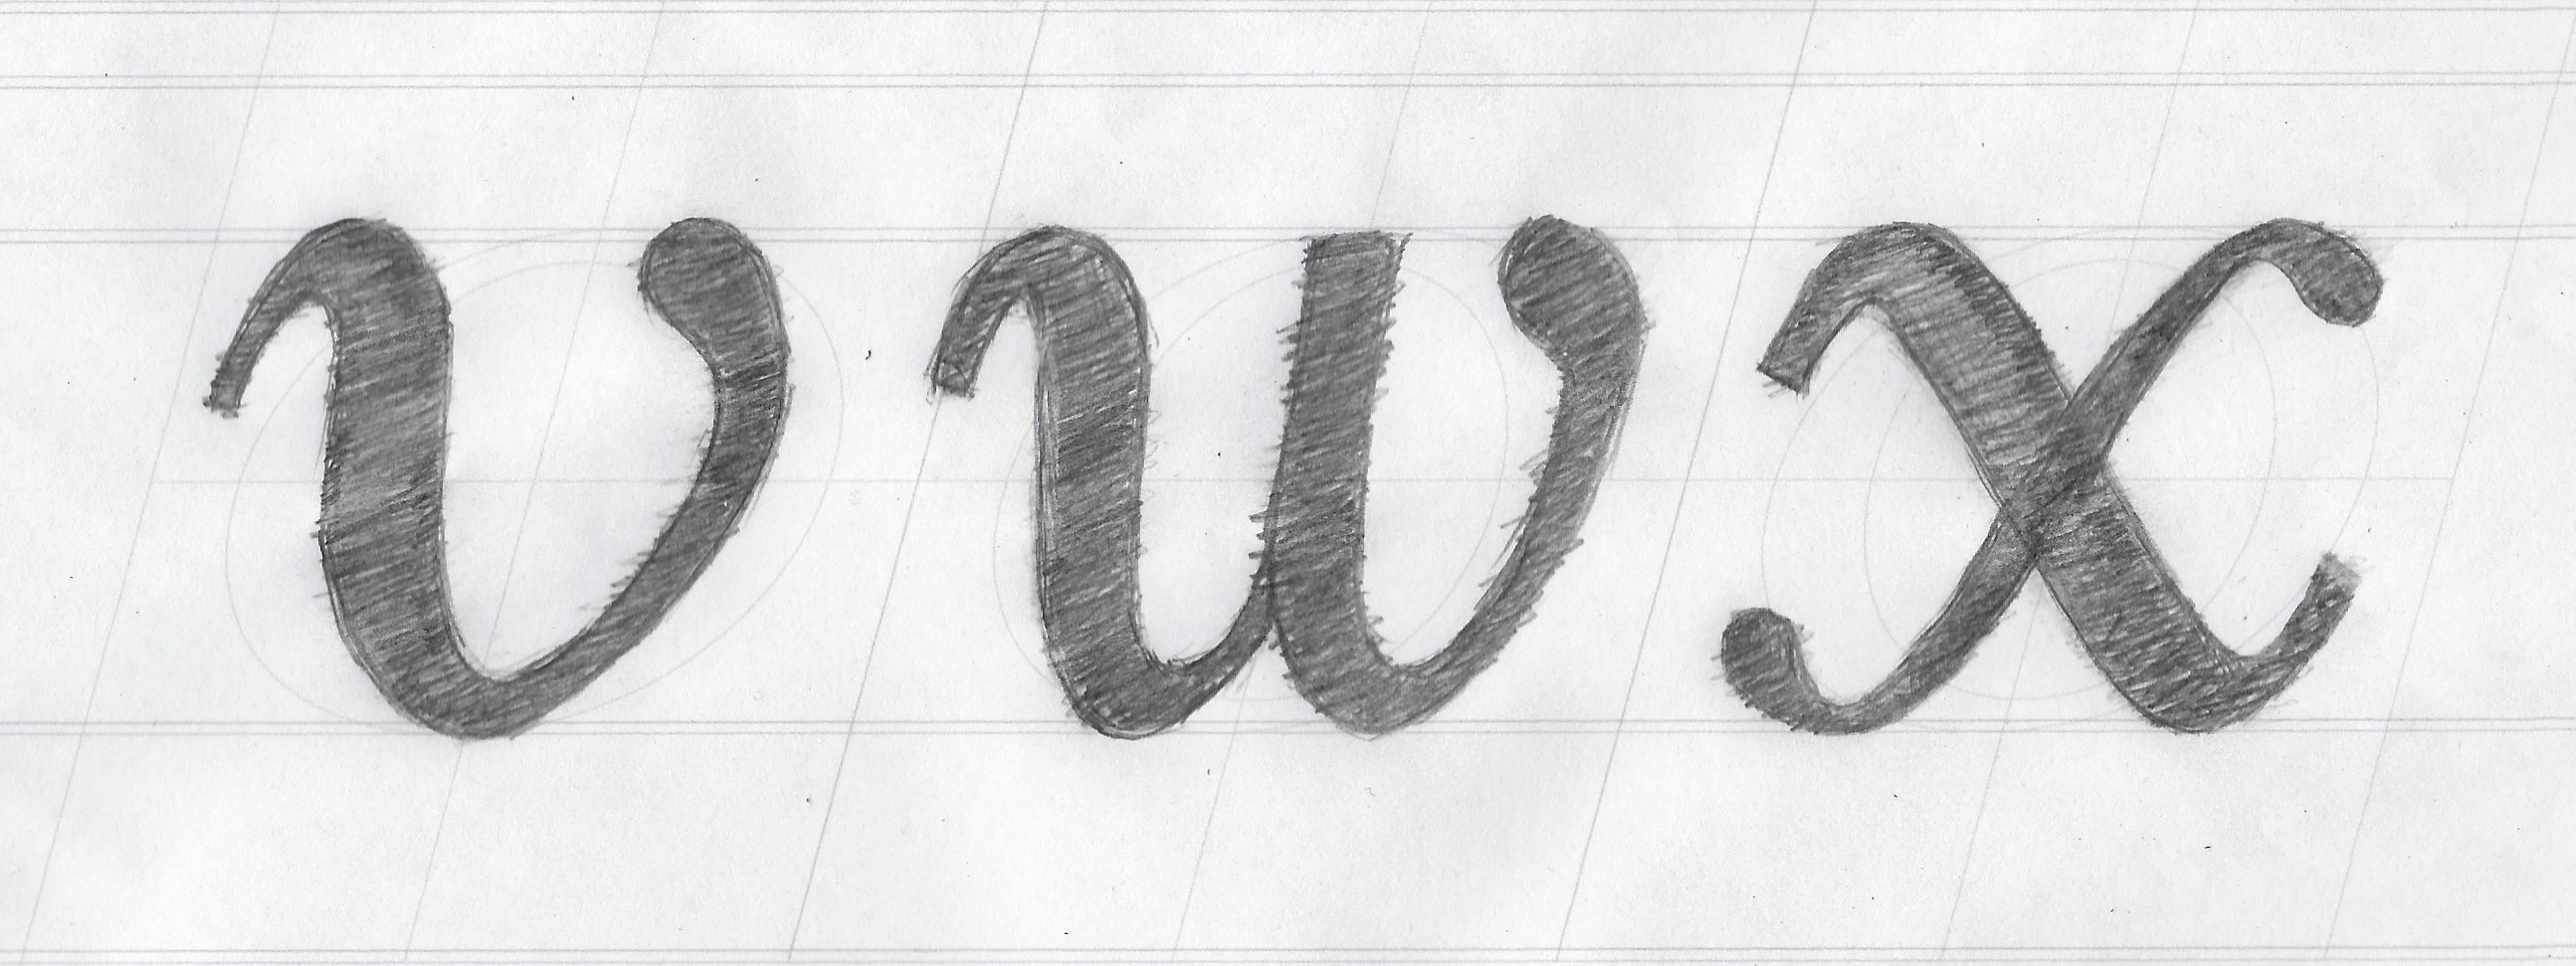 v w x